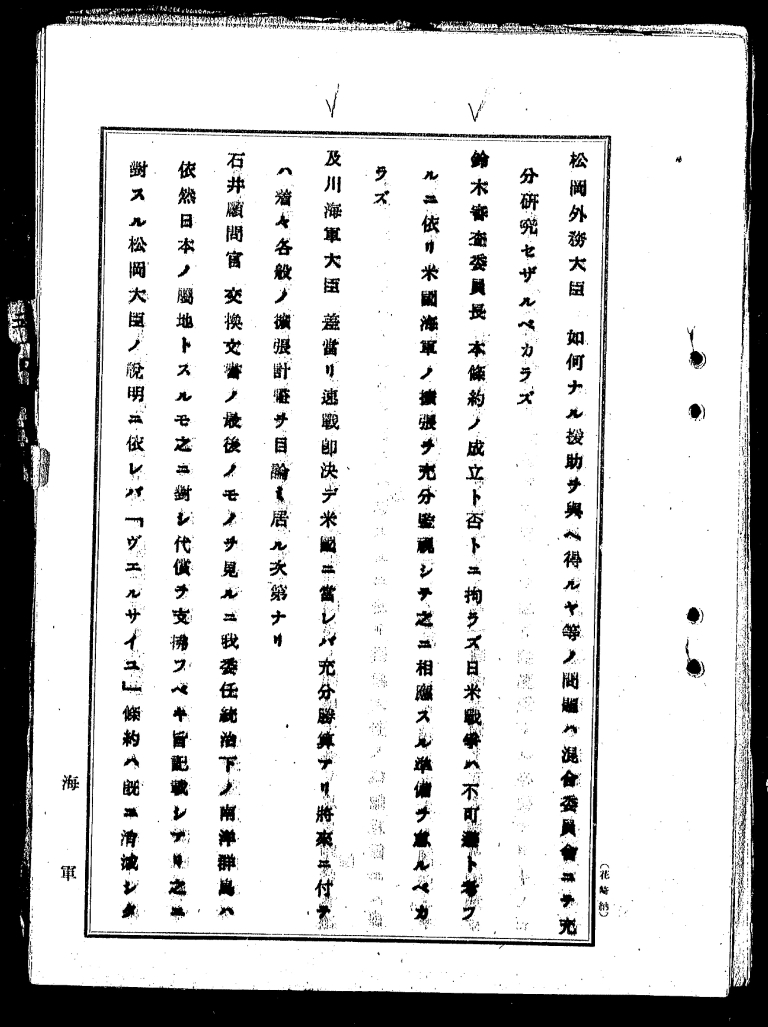 松岡外務大臣　如何ナル援助ヲ與ヘ得ルヤ等ノ問題ハ混合委員會ニテ充
分研究セザルベカラズ
鈴木審査委員長　本條約ノ成立ト否トニ拘ラズ日米戰爭ハ不可避ト考フ
ルニ依リ米國海軍ノ擴張ヲ充分監視シテ之ニ相應スル準備ヲ怠ルベカ
ラズ
及川海軍大臣　差當リ速戰即決デ米國ニ當レバ充分勝算アリ將來ニ付テ
ハ着々各般ノ擴張計畫ヲ目論ミ居ル次第ナリ
石井顧問官　交換文書ノ最後ノモノヲ見ルニ我委任統治下ノ南洋群島ハ
依然日本ノ屬地トスルモ之ニ對シ代償ヲ支拂フベキ旨記載シアリ之ニ
對スル松岡大臣ノ說明ニ依レバ「ヴエルサイユ」條約ハ既ニ消滅シタ
海軍